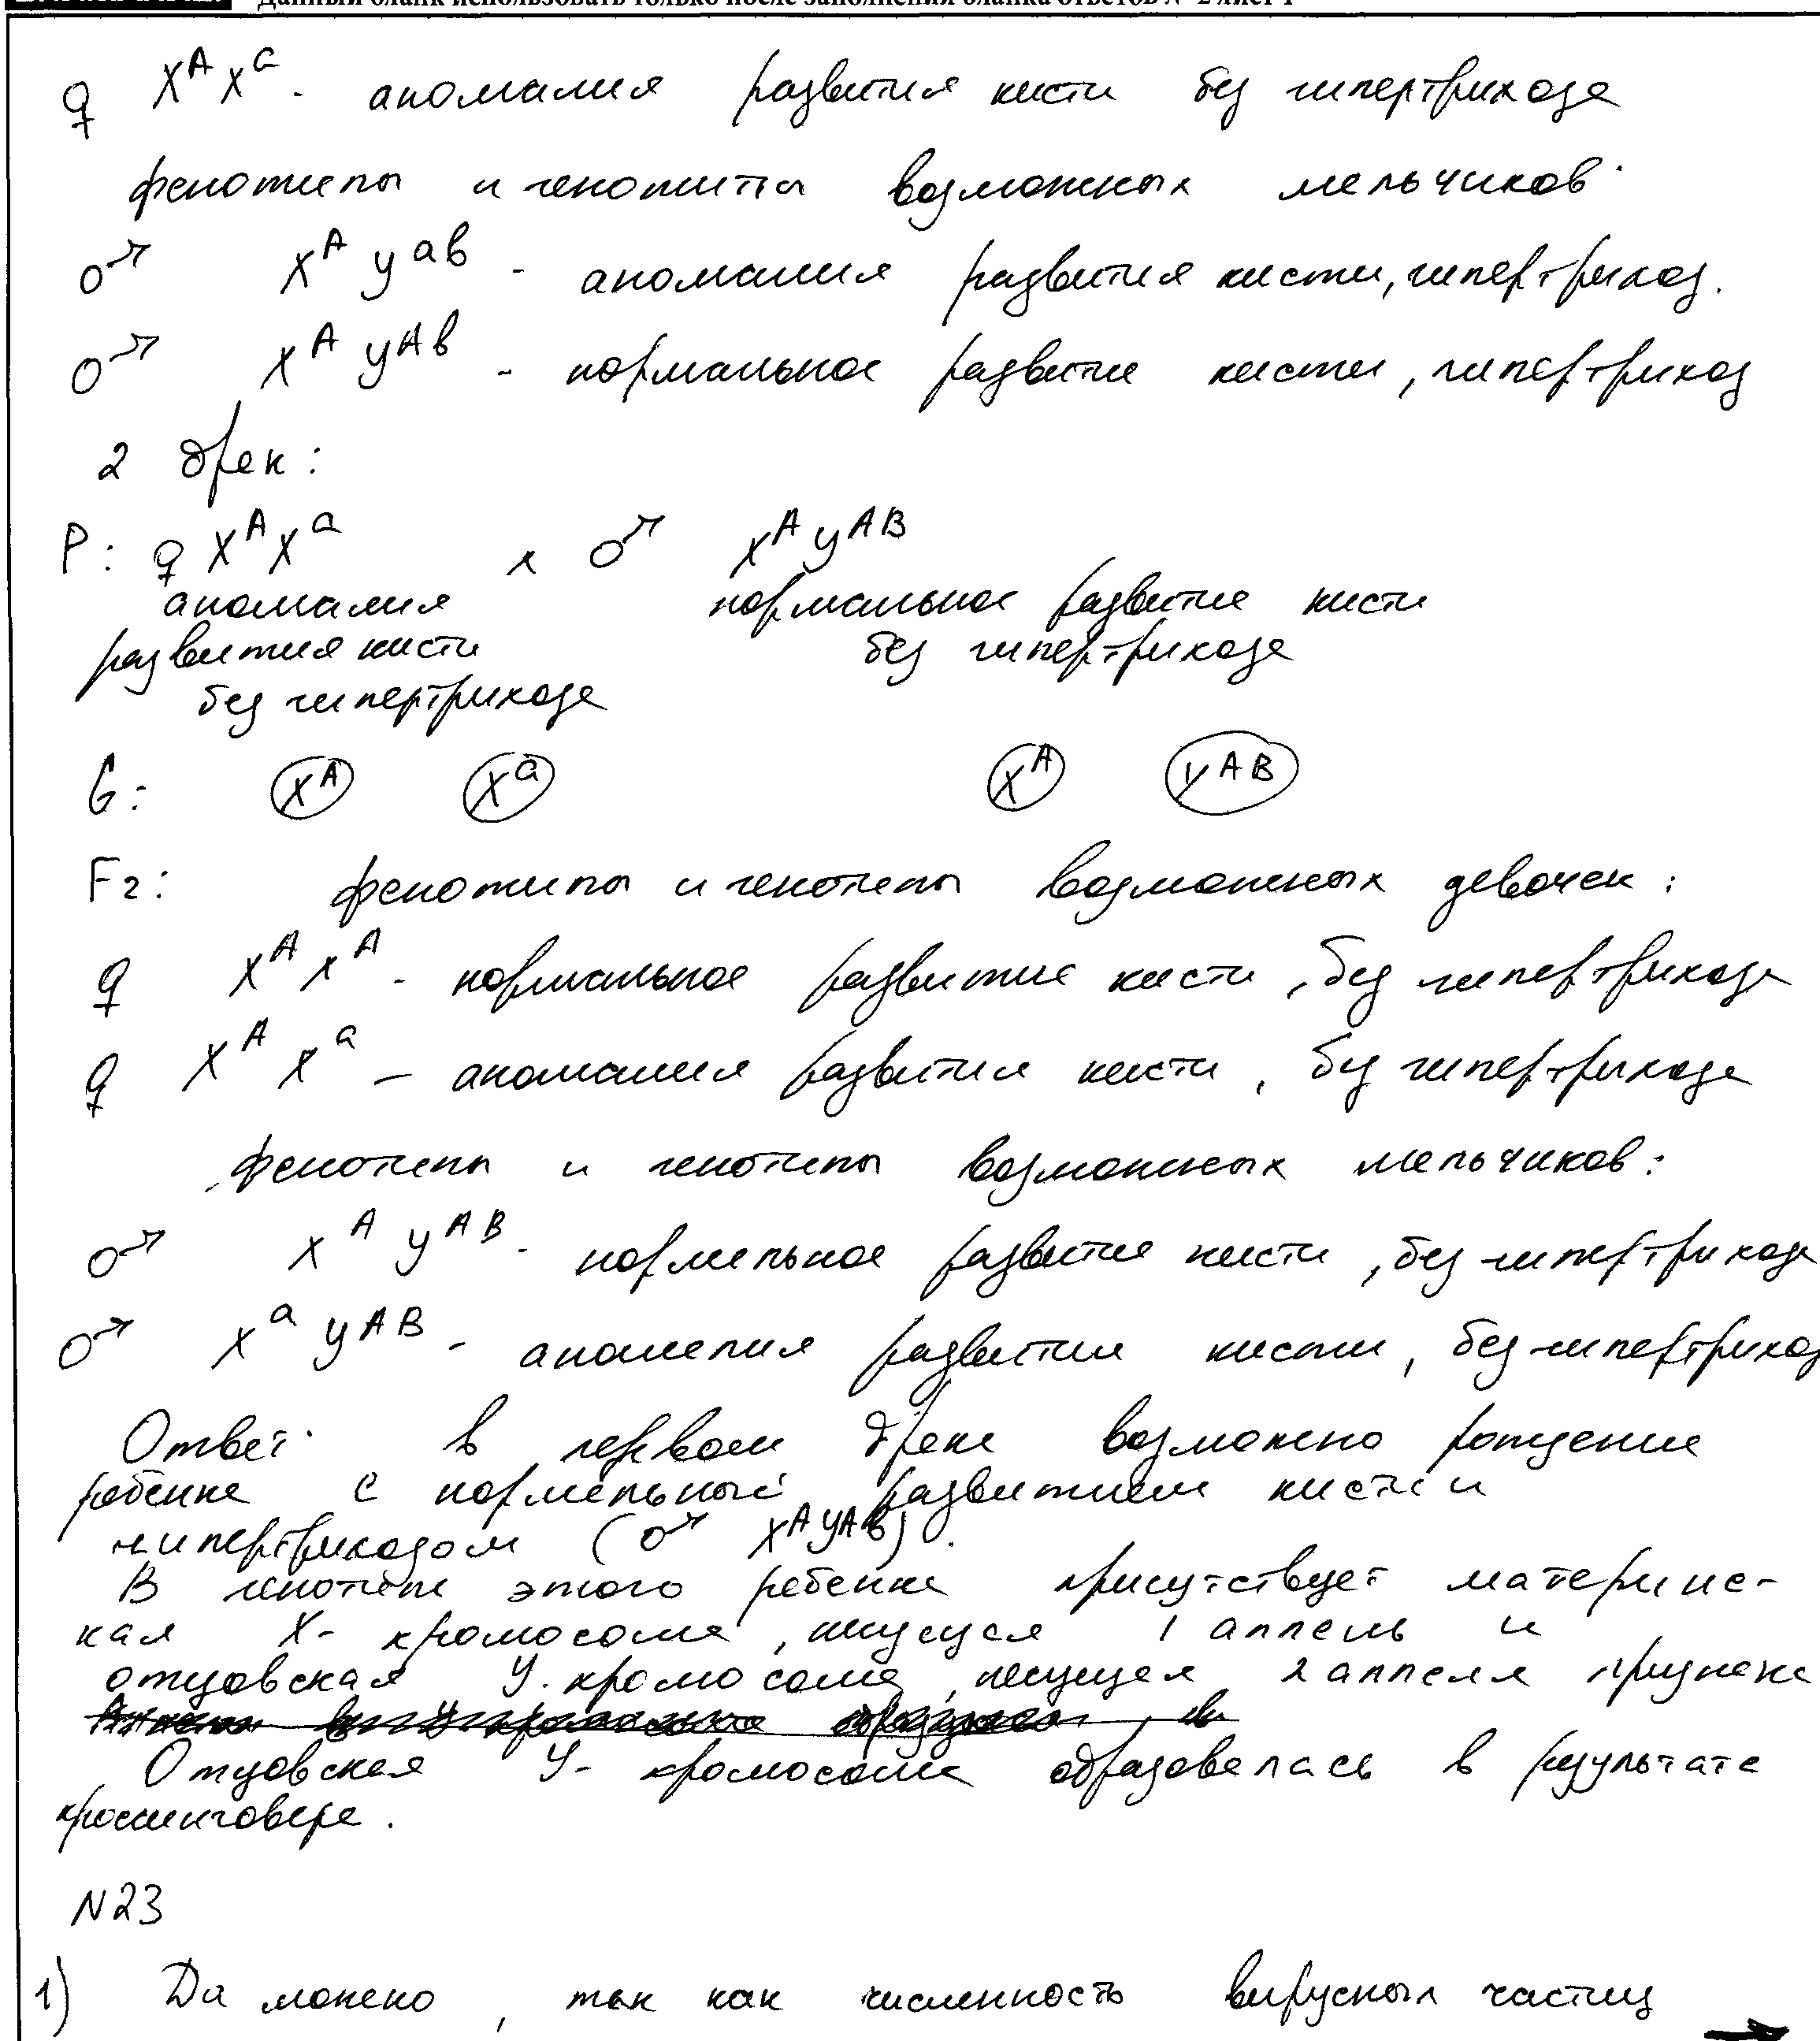 Данный бланк использовать только после заполнения бланка ответов № 2 лист 1
♀ X^A X^a - аномалия развития кисти без гипертрихоза
фенотипы и генотипы возможных мальчиков:
♂ X^A Y^ab - аномалия развития кисти, гипертрихоз.
♂ X^A Y^Ab - нормальное развитие кисти, гипертрихоз
2 брак:
P: ♀ X^A X^a x ♂ X^A Y^AB
аномалия нормальное развитие кисти
развития кисти без гипертрихоза
без гипертрихоза
G: X^A X^a X^A Y^AB
F2: фенотипы и генотипы возможных девочек:
♀ X^A X^A - нормальное развитие кисти, без гипертрихоза
♀ X^A X^a - аномалия развития кисти, без гипертрихоза
фенотипы и генотипы возможных мальчиков:
♂ X^A Y^AB - нормальное развитие кисти, без гипертрихоза
♂ X^a Y^AB - аномалия развития кисти, без гипертрихоз
Ответ: в первом браке возможно рождение
ребенка с нормальный развитием кисти и
гипертрихозом (♂ X^A Y^Ab).
В генотипе этого ребенка присутствует материнс-
кая X- хромосома, несущая 1 аллель и
отцовская Y-хромосома, несущая 2 аллеля признака
Отцовская Y- хромосома образовалась в результате
кроссинговера.
N23
1) Да можно, так как численность вирусных частиц